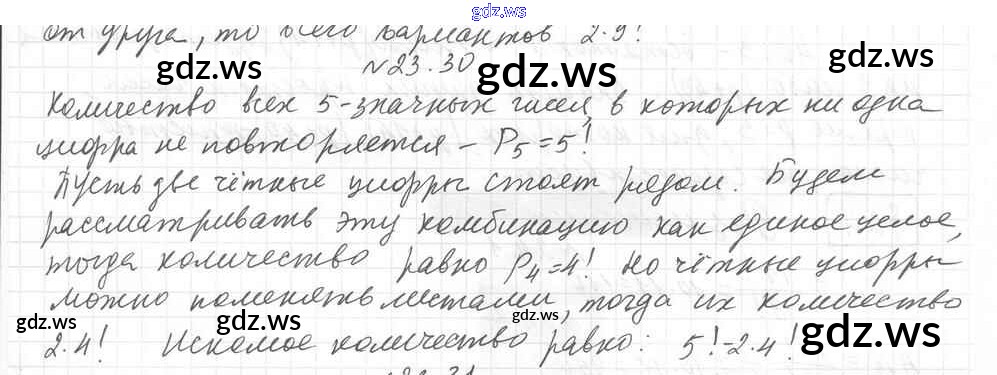 gdz.ws
от друга, то всего вариантов 2·9!
№23.30
gdz.ws gdz.ws gdz.ws
Количество всех 5-значных чисел, в которых ни одна
цифра не повторяется – P₅=5!
Пусть две чётные цифры стоят рядом. Будем
рассматривать эту комбинацию как единое целое,
тогда количество равно P₄=4! Но чётные цифры
можно поменять местами, тогда их количество
gdz.ws gdz.ws gdz.ws
2·4! Искомое количество равно: 5!-2·4!